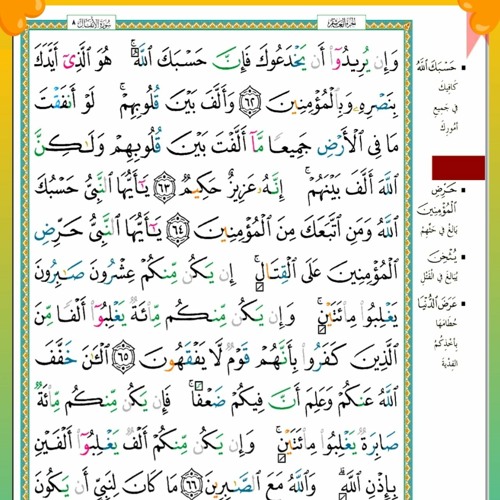 سُورَةُ الأَنفَالِ ٨
الجُزءُ العَاشِرُ
وَإِن يُرِيدُوٓا۟ أَن يَخْدَعُوكَ فَإِنَّ حَسْبَكَ ٱللَّهُ ۚ هُوَ ٱلَّذِىٓ أَيَّدَكَ
بِنَصْرِهِۦ وَبِٱلْمُؤْمِنِينَ ٦٢ وَأَلَّفَ بَيْنَ قُلُوبِهِمْ ۚ لَوْ أَنفَقْتَ
مَا فِى ٱلْأَرْضِ جَمِيعًا مَّآ أَلَّفْتَ بَيْنَ قُلُوبِهِمْ وَلَـٰكِنَّ
ٱللَّهَ أَلَّفَ بَيْنَهُمْ ۚ إِنَّهُۥ عَزِيزٌ حَكِيمٌ ٦٣ يَـٰٓأَيُّهَا ٱلنَّبِىُّ حَسْبُكَ
ٱللَّهُ وَمَنِ ٱتَّبَعَكَ مِنَ ٱلْمُؤْمِنِينَ ٦٤ يَـٰٓأَيُّهَا ٱلنَّبِىُّ حَرِّضِ
ٱلْمُؤْمِنِينَ عَلَى ٱلْقِتَالِ ۚ إِن يَكُن مِّنكُمْ عِشْرُونَ صَـٰبِرُونَ
يَغْلِبُوا۟ مِا۟ئَتَيْنِ ۚ وَإِن يَكُن مِّنكُم مِّا۟ئَةٌ يَغْلِبُوٓا۟ أَلْفًا مِّنَ
ٱلَّذِينَ كَفَرُوا۟ بِأَنَّهُمْ قَوْمٌ لَّا يَفْقَهُونَ ٦٥ ٱلْـَٔـٰنَ خَفَّفَ
ٱللَّهُ عَنكُمْ وَعَلِمَ أَنَّ فِيكُمْ ضَعْفًا ۚ فَإِن يَكُن مِّنكُم مِّا۟ئَةٌ
صَابِرَةٌ يَغْلِبُوا۟ مِا۟ئَتَيْنِ ۚ وَإِن يَكُن مِّنكُمْ أَلْفٌ يَغْلِبُوٓا۟ أَلْفَيْنِ
بِإِذْنِ ٱللَّهِ ۗ وَٱللَّهُ مَعَ ٱلصَّـٰبِرِينَ ٦٦ مَا كَانَ لِنَبِىٍّ أَن يَكُونَ
حَسْبَكَ ٱللَّهُ
كَافِيكَ
فِي جَمِيعِ
أُمُورِكَ
حَرِّضِ
ٱلْمُؤْمِنِينَ
بَالِغْ فِي حَثِّهِمْ
يُثْخِنَ
يُبَالِغَ فِي القَتْلِ
عَرَضَ ٱلدُّنْيَا
حُطَامَهَا
بِأَخْذِكُمُ
الفِدْيَةَ